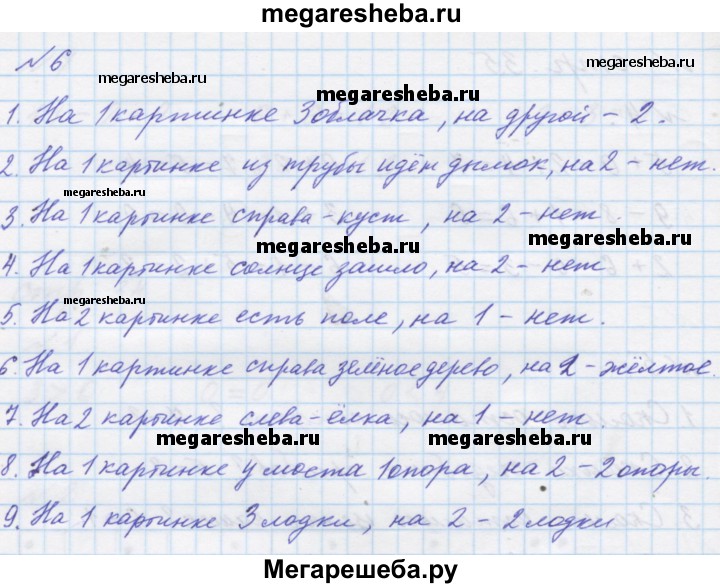 megaresheba.ru
№ 6
megaresheba.ru
megaresheba.ru
megaresheba.ru
1. На 1 картинке 3 облачка, на другой – 2.
2. На 1 картинке из трубы идёт дымок, на 2 – нет.
megaresheba.ru
3. На 1 картинке справа – куст, на 2 – нет.
megaresheba.ru
megaresheba.ru
4. На 1 картинке солнце зашло, на 2 – нет
megaresheba.ru
5. На 2 картинке есть поле, на 1 – нет.
6. На 1 картинке справа зелёное дерево, на 2 – жёлтое.
7. На 2 картинке слева – ёлка, на 1 – нет.
megaresheba.ru
megaresheba.ru
8. На 1 картинке у моста 1 опора, на 2 – 2 опоры.
9. На 1 картинке 3 лодки, на 2 – 2 лодки
Мегарешеба.ру